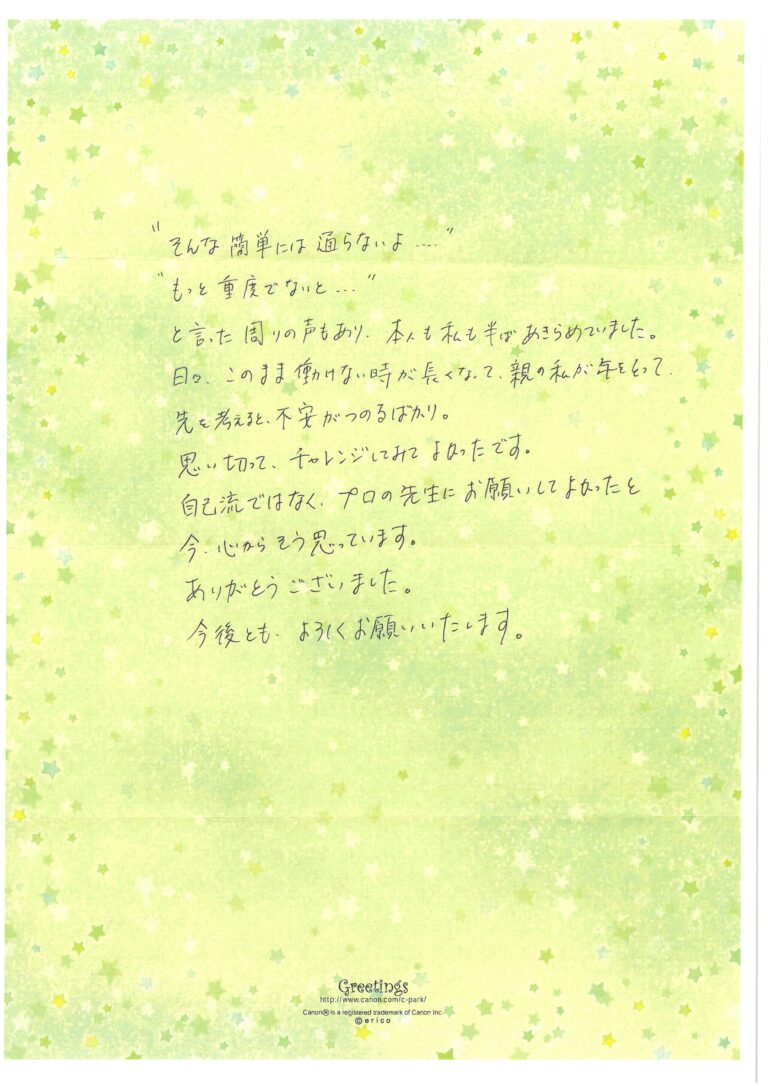 "そんな簡単には通らないよ....."
"もっと重度でないと..."
と言った周りの声もあり、本人も私も半ばあきらめていました。
日々、このまま働けない時が長くなって、親の私が年をとって、
先を考えると、不安がつのるばかり。
思い切って、チャレンジしてみてよかったです。
自己流ではなく、プロの先生にお願いしてよかったと
今、心からそう思っています。
ありがとうございました。
今後とも、よろしくお願いいたします。
Greetings
http://www.canon.com/c-park/
Canon® is a registered trademark of Canon Inc.
©erico